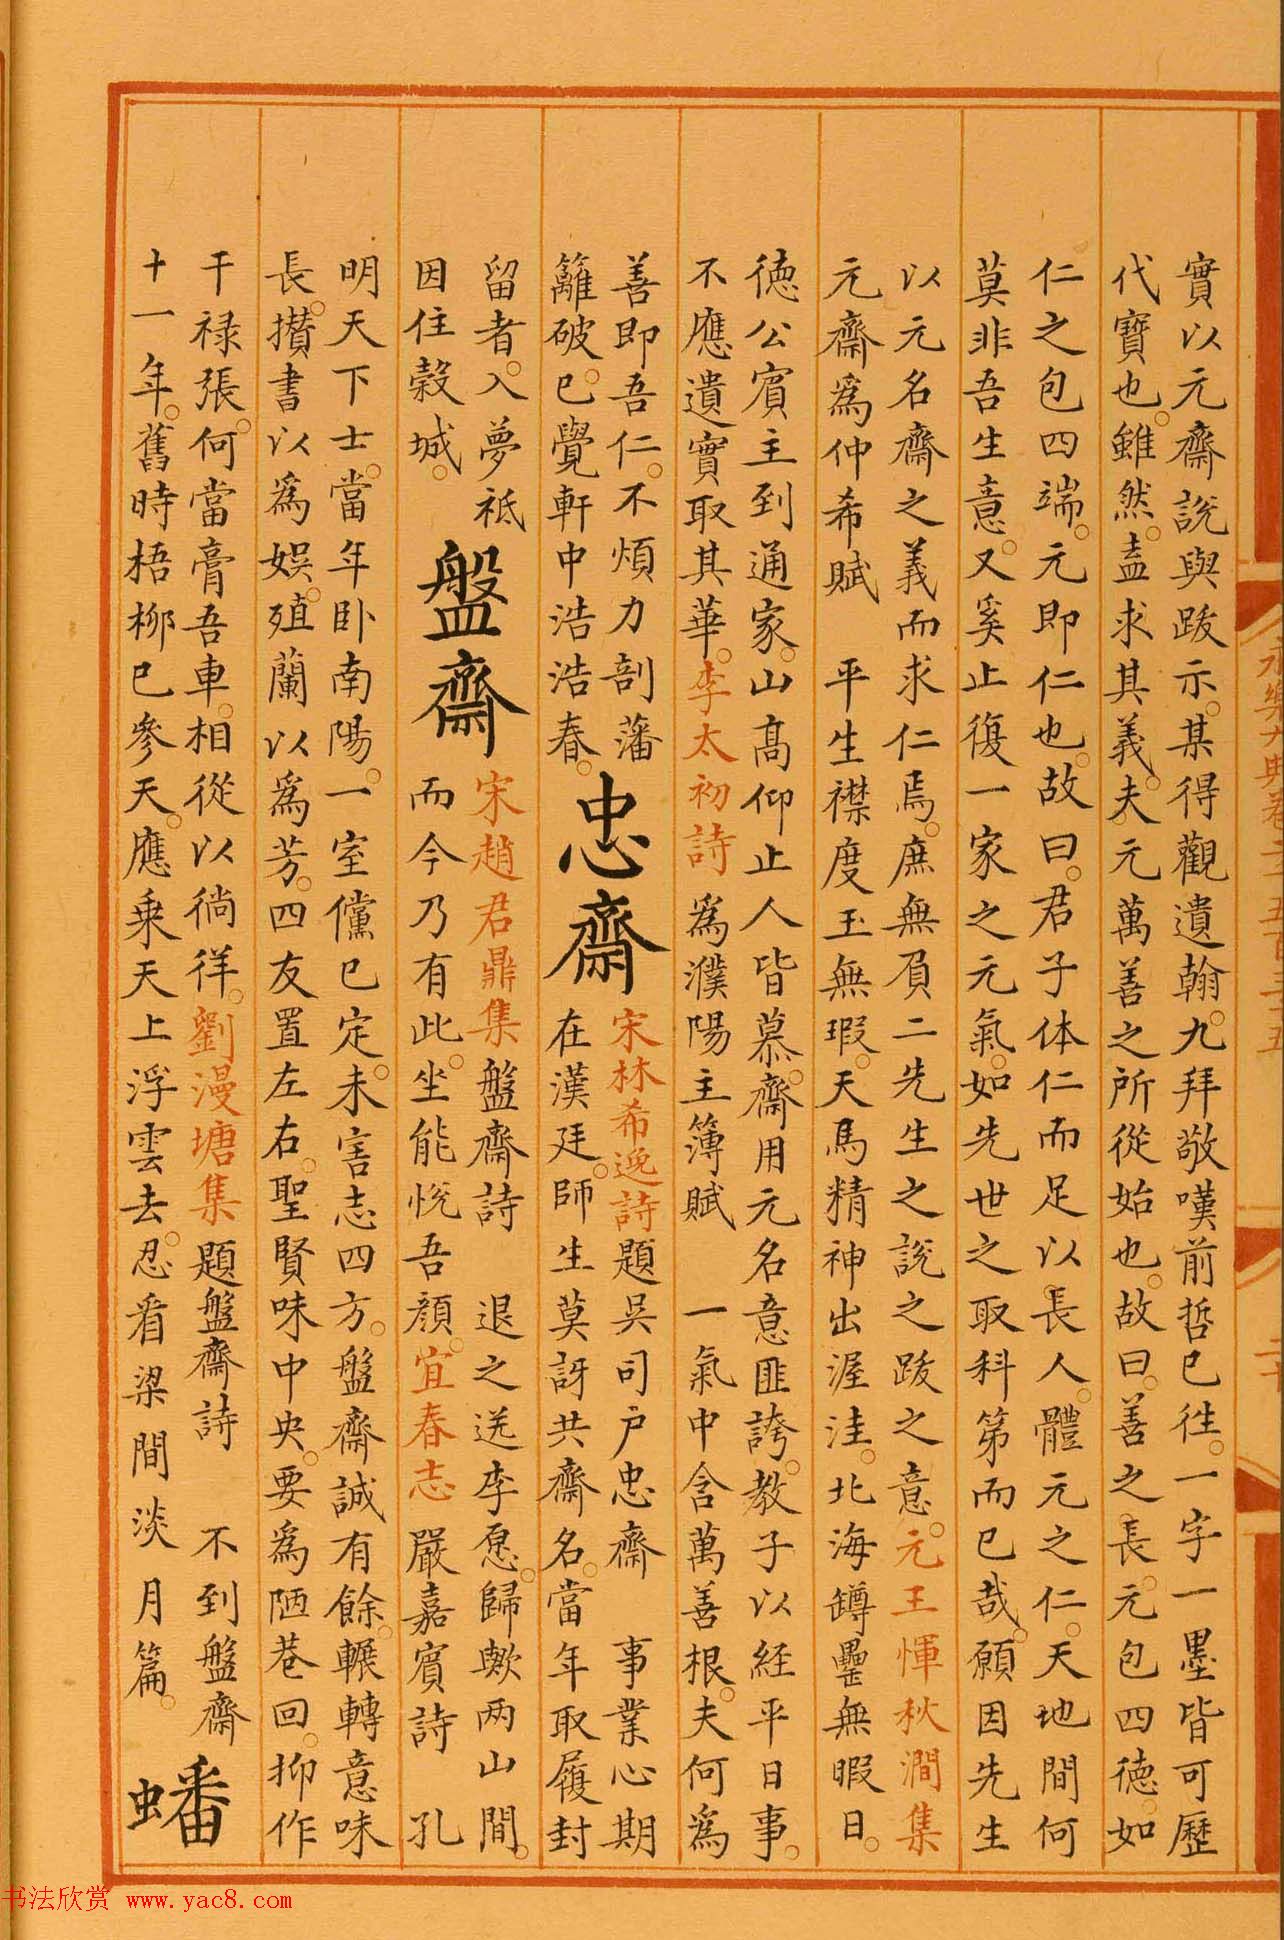 永樂大典卷二千五百三十五
實以元齋說與跋示。某得觀遺翰。九拜敬嘆前哲已徃。一字一墨皆可歷
代寶也。雖然。盍求其義。夫元萬善之所從始也。故曰。善之長。元包四德。如
仁之包四端。元即仁也。故曰。君子体仁而足以長人。體元之仁。天地間何
莫非吾生意。又奚止復一家之元氣。如先世之取科第而已哉。願因先生
以元名齋之義而求仁焉。庶無負二先生之說之跋之意。元王惲秋澗集
元齋為仲希賦 平生襟度玉無瑕。天馬精神出渥洼。北海罇罍無暇日。
德公賓主到通家。山髙仰止人皆慕。齋用元名意匪誇。教子以經平日事。
不應遺實取其華。李太初詩為濮陽主簿賦 一氣中含萬善根。夫何為
善即吾仁。不煩力剖藩
籬破。已覺軒中浩浩春。
忠齋
宋林希逸詩題吳司户忠齋 事業心期
在漢廷。師生莫訝共齋名。當年取履封
留者。入夢祗
因住榖城。
盤齋
宋趙君鼎集盤齋詩 退之送李愿。歸歟两山間。
而今乃有此。坐能悅吾顔。宜春志嚴嘉賓詩 孔
明天下士。當年卧南陽。一室儻已定。未害志四方。盤齋誠有餘。輾轉意味
長。攢書以為娛。殖蘭以為芳。四友置左右。聖賢味中央。要為陋巷回。抑作
干禄張。何當膏吾車。相從以徜徉。劉漫塘集題盤齋詩 不到盤齋
十一年。舊時梧栁已參天。應乘天上浮雲去。忍看梁間淡月篇。
蟠
书法欣赏 www.yac8.com